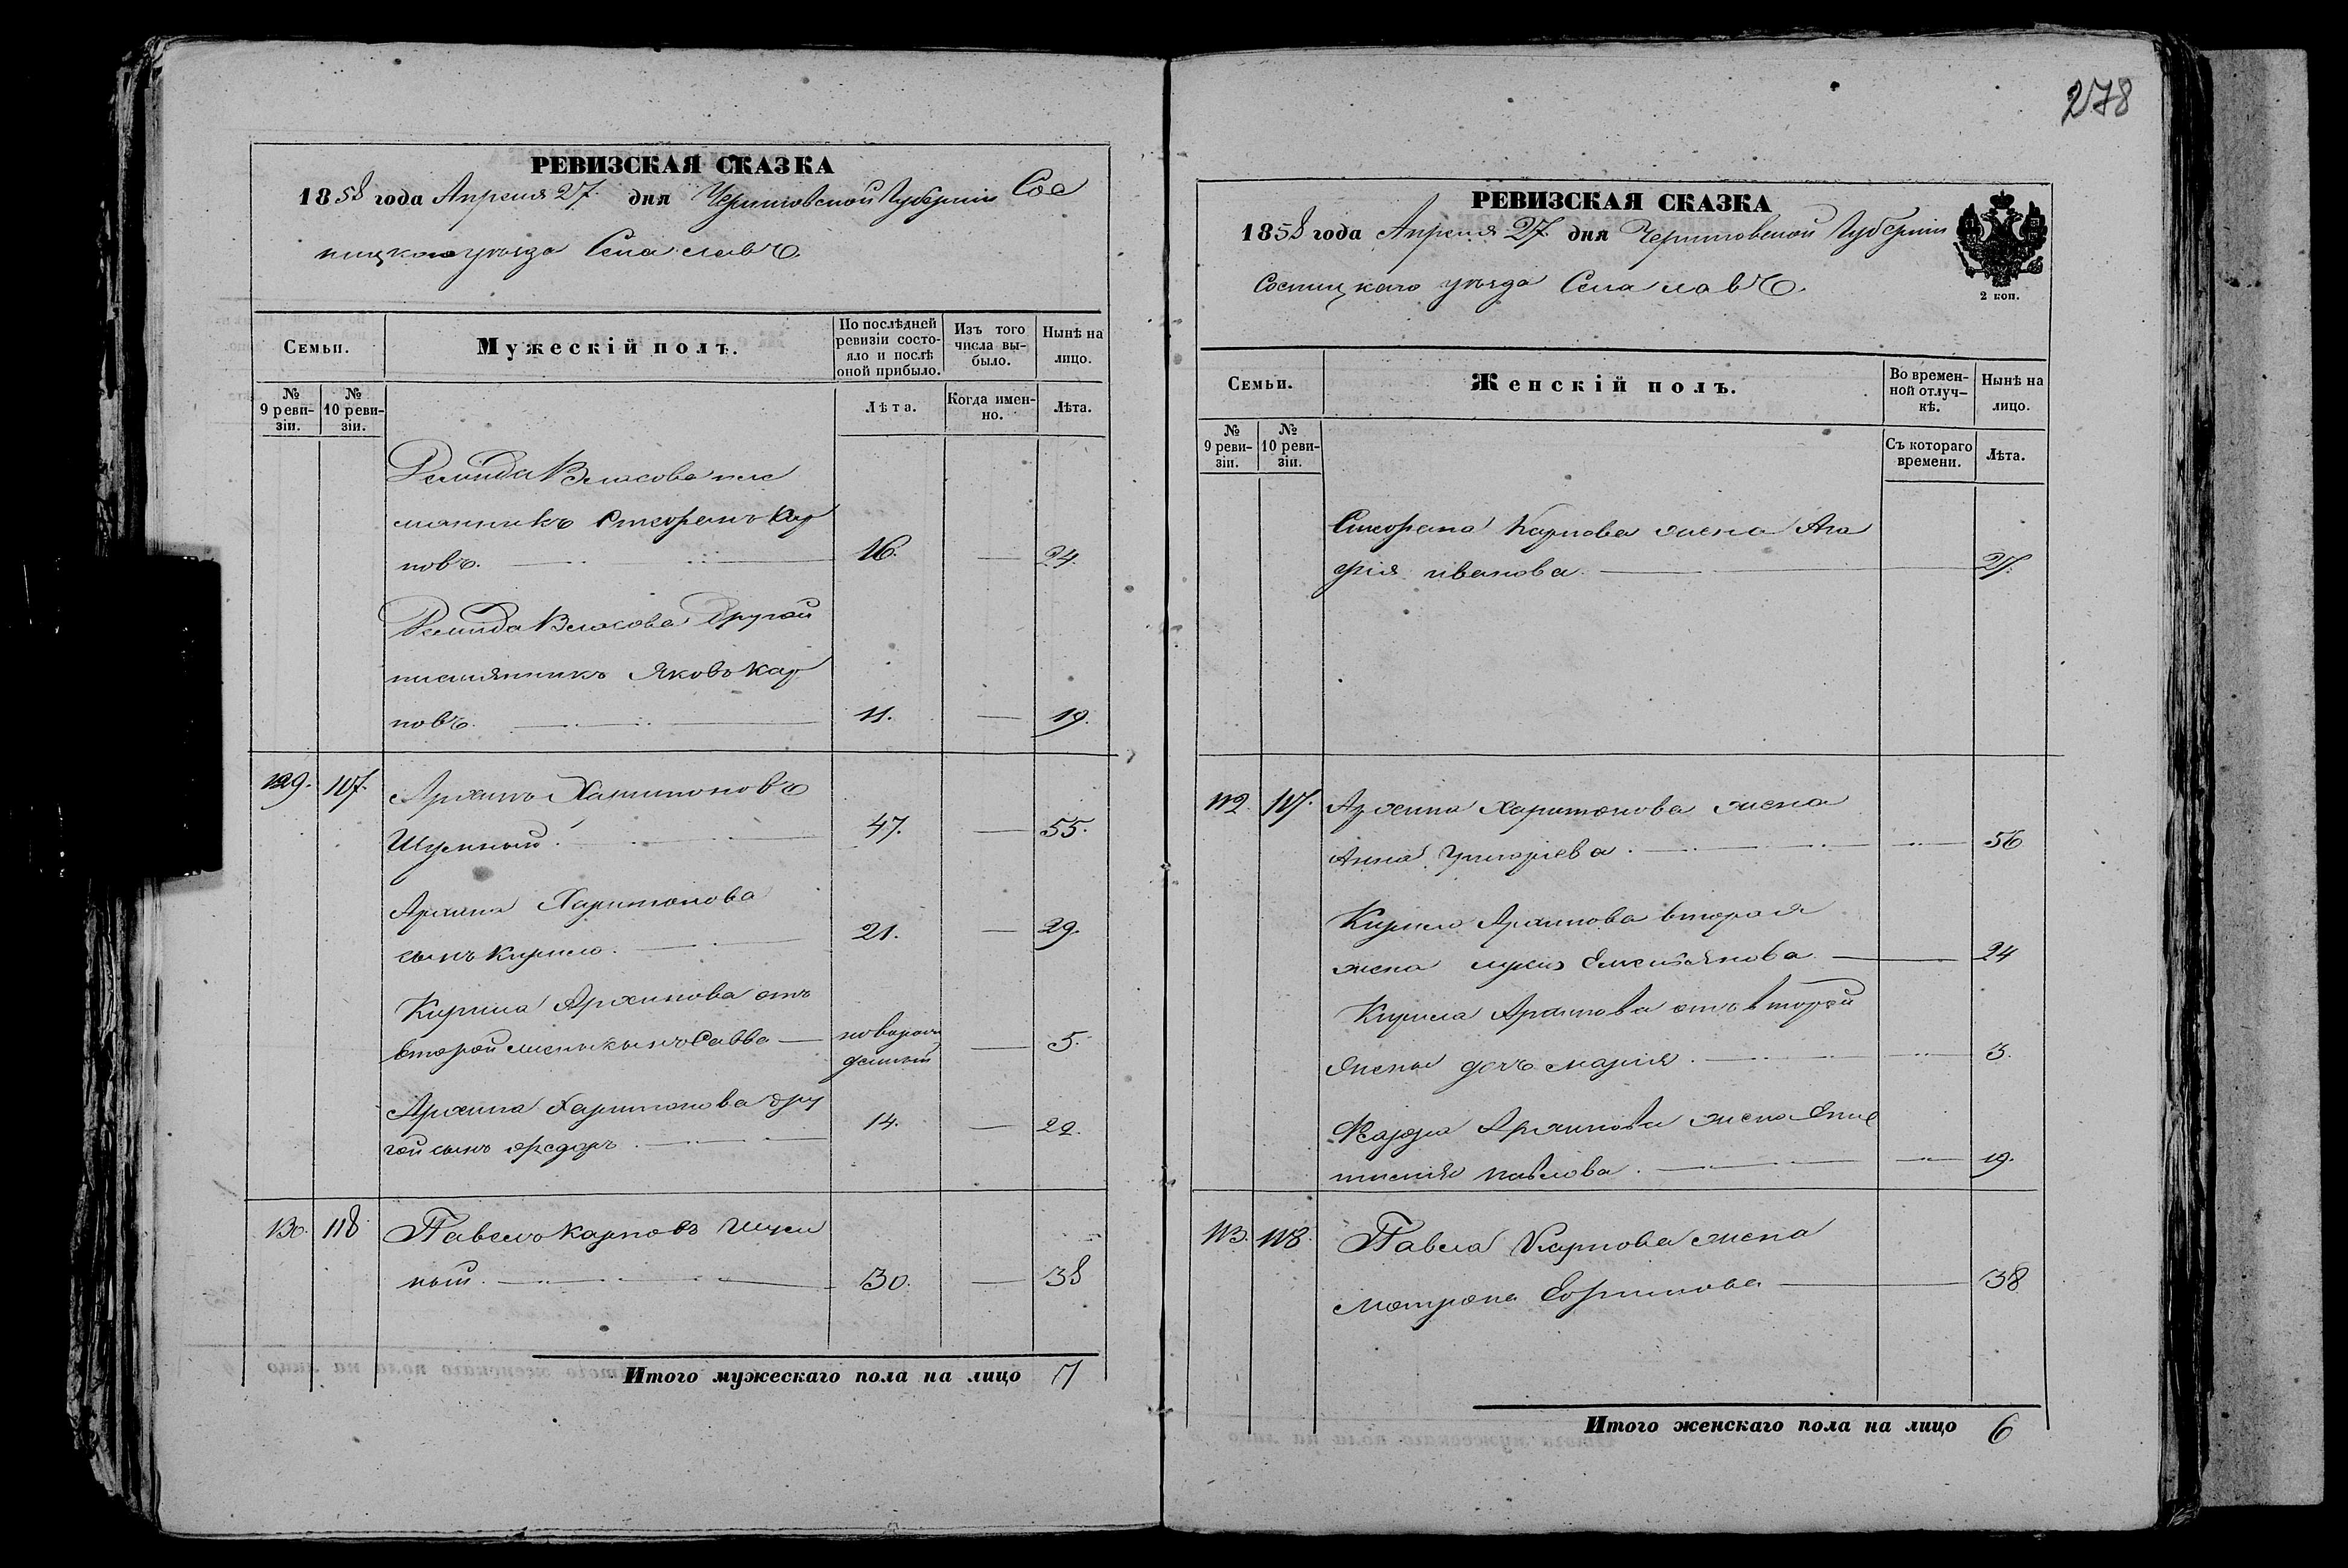 278
РЕВИЗСКАЯ СКАЗКА
1858 года Апреля 27 дня Черниговской Губернии Сос
ницкого уезда Села
Семьи.
Мужескій полъ.
По послѣдней ревизіи состояло и послѣ оной прибыло.
Изъ того числа выбыло.
Нынѣ на лицо.
№ 9 ревизіи.
№ 10 ревизіи.
Лѣта.
Когда именно.
Лѣта.
Демида Власова пле
мянникъ Стефанъ Кар
повъ. 16. — 24.
Демида Власова Другой
племянникъ Яковъ Кар
повъ. 11. — 19.
129. 117. Архипъ Харитоновъ
47. — 55.
Архипа Харитонова
сынъ Кирило. 21. — 29.
Кирила Архипова отъ
второй жены сынъ Савва — новорож
денный — 5.
Архипа Харитонова дру
гой сынъ Федоръ. 14. — 22.
130. 118. Павелъ Карповъ
ный. 30. — 38
Итого мужескаго пола на лицо 7
РЕВИЗСКАЯ СКАЗКА
1858 года Апреля 27 дня Черниговской Губернии
Сосницкаго уезда Села
2 коп.
Семьи.
Женскій полъ.
Во временной отлучкѣ.
Нынѣ на лицо.
№ 9 ревизіи.
№ 10 ревизіи.
Съ котораго времени.
Лѣта.
Стефана Карпова жена Ага
фія Иванова.
112. 117. Архипа Харитонова жена
Анна Григорьева. 56
Кирила Архипова вторая
жена Емельянова — 24
Кирила Архипова отъ второй
жены дочь Марія. 3.
Архипова жена
Павлова. 19.
113. 118. Павла Карпова жена
Матрона — 38
Итого женскаго пола на лицо 6